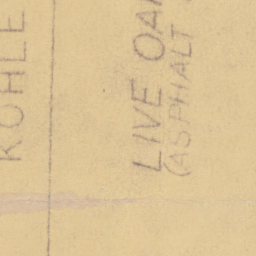 KOHLE
LIVE OA
(ASPHALT